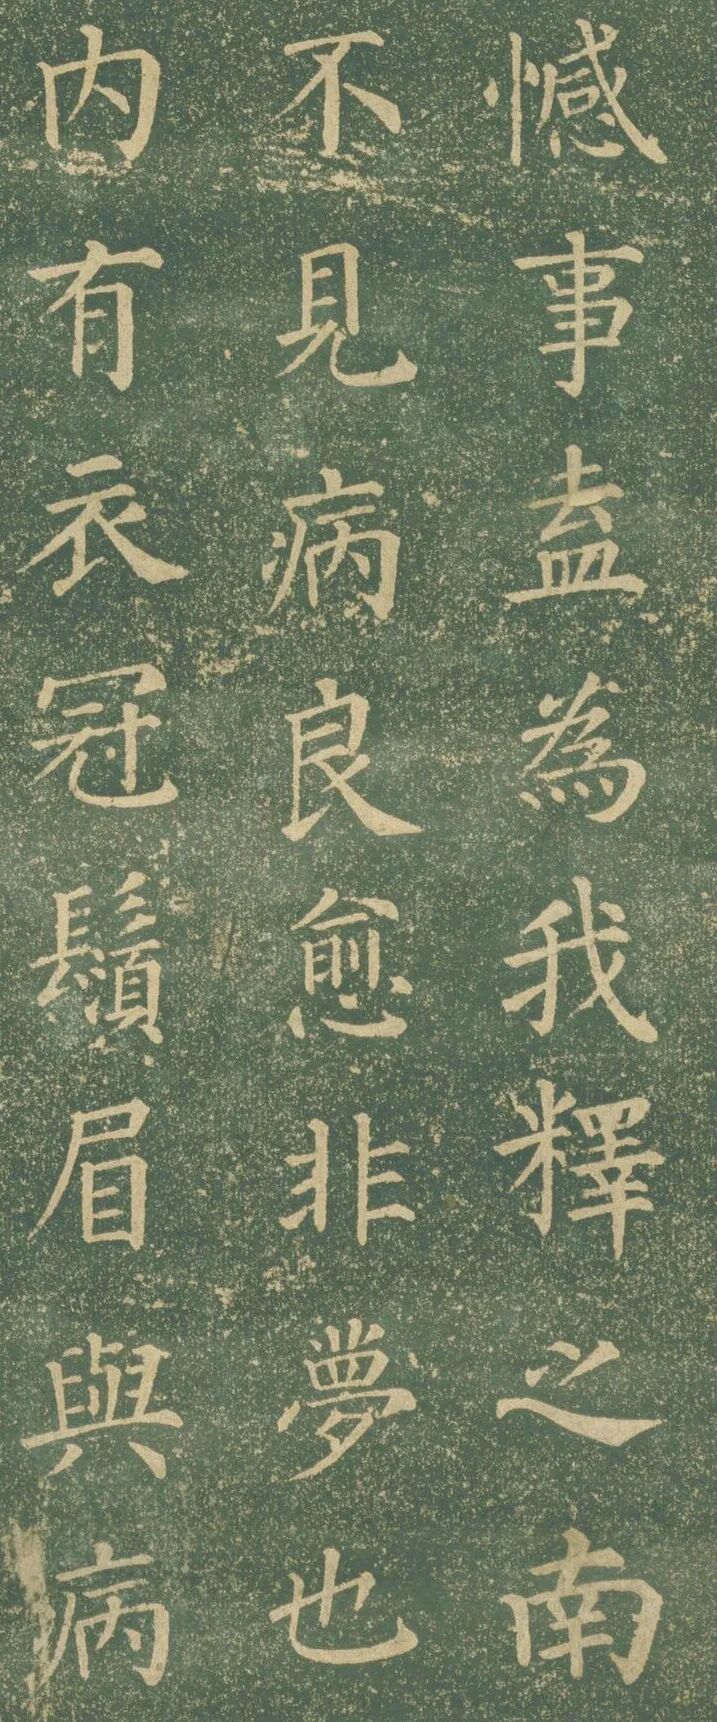 憾事盍為我釋之南
不見病良愈非夢也
內有衣冠鬚眉與病